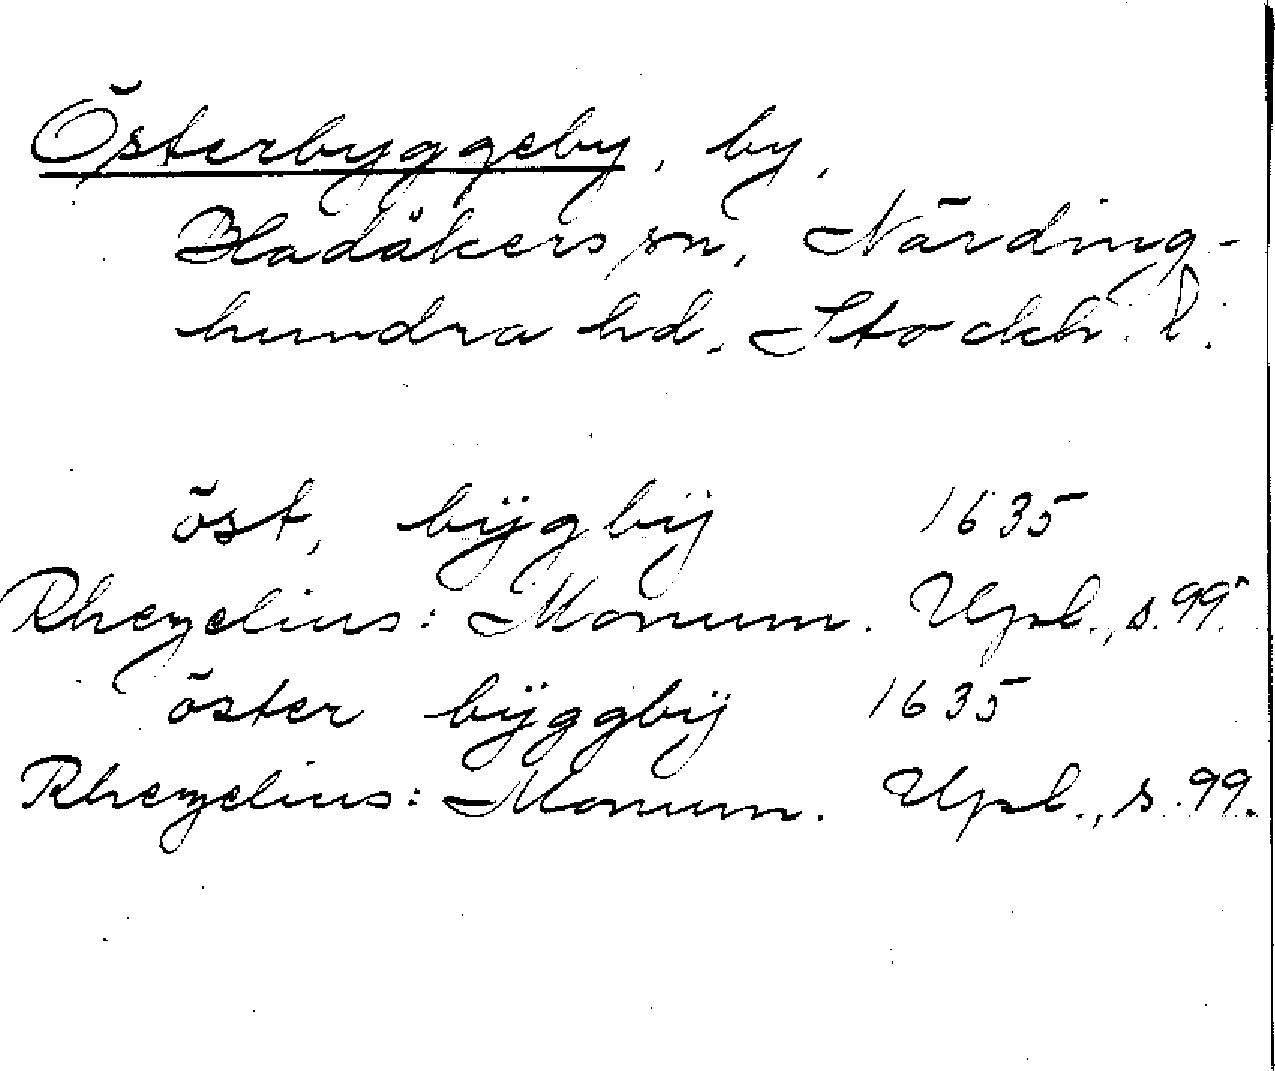 Österbyggeby, by,
Bladåkers sn, Närding-
hundra hd, Stockh. l.
öst, bÿgbÿ 1635
Rhezelius: Monum. Upl., s. 99.
öster bÿggbÿ 1635
Rhezelius: Monum. Upl., s. 99.